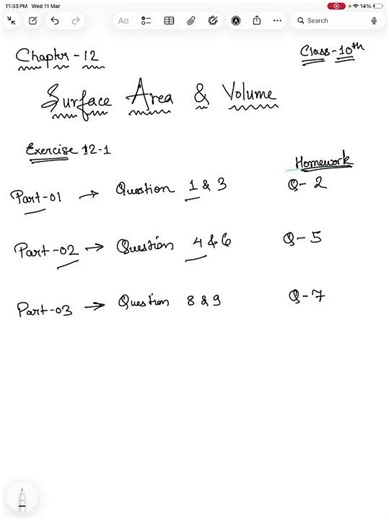 11:33 PM Wed 11 Mar 14%
Aa Search
Chapter-12 Class-10th
Surface Area & Volume
Exercise 12-1
Homework
Part-01 → Question 1 & 3 Q-2
Part-02 → Question 4 & 6 Q-5
Part-03 → Question 8 & 9 Q-7